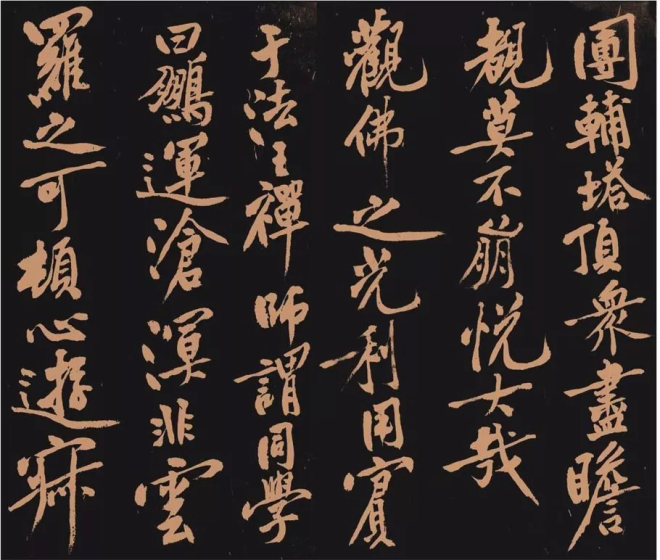 團輔塔頂衆盡瞻
覩莫不崩悦大哉
觀佛之光利用賓
于法王禪師謂同學
曰鵬運滄溟非雲
羅之可頓心遊寂